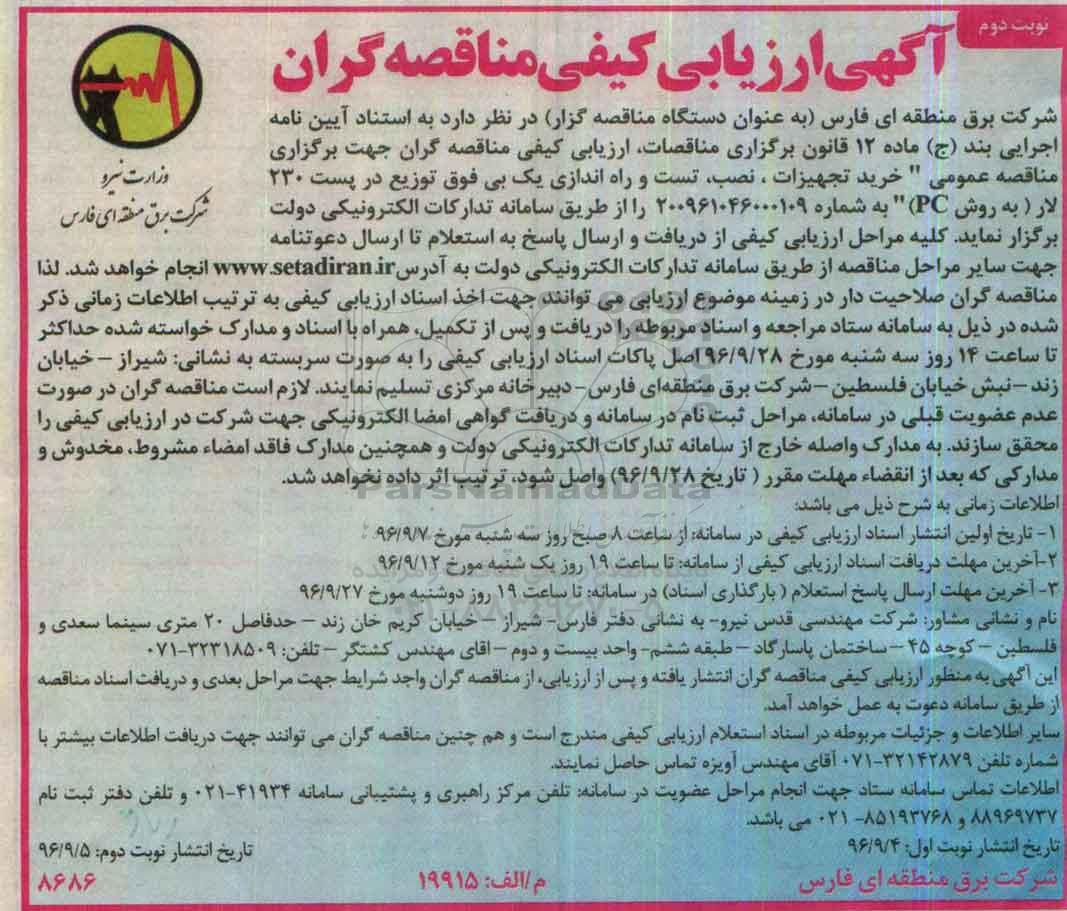 نوبت دوم
آگهی ارزیابی کیفی مناقصه گران
وزارت نیرو
شرکت برق منطقه ای فارس
شرکت برق منطقه ای فارس (به عنوان دستگاه مناقصه گزار) در نظر دارد به استناد آیین نامه
اجرایی بند (ج) ماده ۱۲ قانون برگزاری مناقصات، ارزیابی کیفی مناقصه گران جهت برگزاری
مناقصه عمومی " خرید تجهیزات ، نصب، تست و راه اندازی یک بی فوق توزیع در پست ۲۳۰
لار ( به روش PC)" به شماره ۲۰۰۹۶۱۰۴۶۰۰۰۱۰۹ را از طریق سامانه تدارکات الکترونیکی دولت
برگزار نماید. کلیه مراحل ارزیابی کیفی از دریافت و ارسال پاسخ به استعلام تا ارسال دعوتنامه
جهت سایر مراحل مناقصه از طریق سامانه تدارکات الکترونیکی دولت به آدرس www.setadiran.ir انجام خواهد شد. لذا
مناقصه گران صلاحیت دار در زمینه موضوع ارزیابی می توانند جهت اخذ اسناد ارزیابی کیفی به ترتیب اطلاعات زمانی ذکر
شده در ذیل به سامانه ستاد مراجعه و اسناد مربوطه را دریافت و پس از تکمیل، همراه با اسناد و مدارک خواسته شده حداکثر
تا ساعت ۱۴ روز سه شنبه مورخ ۹۶/۹/۲۸ اصل پاکات اسناد ارزیابی کیفی را به صورت سربسته به نشانی: شیراز – خیابان
زند – نبش خیابان فلسطین – شرکت برق منطقه‌ای فارس - دبیرخانه مرکزی تسلیم نمایند. لازم است مناقصه گران در صورت
عدم عضویت قبلی در سامانه، مراحل ثبت نام در سامانه و دریافت گواهی امضا الکترونیکی جهت شرکت در ارزیابی کیفی را
محقق سازند. به مدارک واصله خارج از سامانه تدارکات الکترونیکی دولت و همچنین مدارک فاقد امضاء مشروط، مخدوش و
مدارکی که بعد از انقضاء مهلت مقرر ( تاریخ ۹۶/۹/۲۸) واصل شود، ترتیب اثر داده نخواهد شد.
ParsNamadData
اطلاعات زمانی به شرح ذیل می باشد:
۱- تاریخ اولین انتشار اسناد ارزیابی کیفی در سامانه: از ساعت ۸ صبح روز سه شنبه مورخ ۹۶/۹/۷
۲-آخرین مهلت دریافت اسناد ارزیابی کیفی از سامانه: تا ساعت ۱۹ روز یک شنبه مورخ ۹۶/۹/۱۲
۳- آخرین مهلت ارسال پاسخ استعلام ( بارگذاری اسناد) در سامانه: تا ساعت ۱۹ روز دوشنبه مورخ ۹۶/۹/۲۷
نام و نشانی مشاور: شرکت مهندسی قدس نیرو- به نشانی دفتر فارس- شیراز – خیابان کریم خان زند – حدفاصل ۲۰ متری سینما سعدی و
فلسطین – کوچه ۴۵ – ساختمان پاسارگاد – طبقه ششم- واحد بیست و دوم – اقای مهندس کشتگر – تلفن: ۳۲۳۱۸۵۰۹-۰۷۱
این آگهی به منظور ارزیابی کیفی مناقصه گران انتشار یافته و پس از ارزیابی، از مناقصه گران واجد شرایط جهت مراحل بعدی و دریافت اسناد مناقصه
از طریق سامانه دعوت به عمل خواهد آمد.
سایر اطلاعات و جزئیات مربوطه در اسناد استعلام ارزیابی کیفی مندرج است و هم چنین مناقصه گران می توانند جهت دریافت اطلاعات بیشتر با
شماره تلفن ۳۲۱۴۲۸۷۹-۰۷۱ آقای مهندس آویزه تماس حاصل نمایند.
اطلاعات تماس سامانه ستاد جهت انجام مراحل عضویت در سامانه: تلفن مرکز راهبری و پشتیبانی سامانه ۴۱۹۳۴-۰۲۱ و تلفن دفتر ثبت نام
۸۸۹۶۹۷۳۷ و ۸۵۱۹۳۷۶۸- ۰۲۱ می باشد.
تاریخ انتشار نوبت اول: ۹۶/۹/۴
تاریخ انتشار نوبت دوم: ۹۶/۹/۵
شرکت برق منطقه ای فارس
م/الف: ۱۹۹۱۵
۸۶۸۶